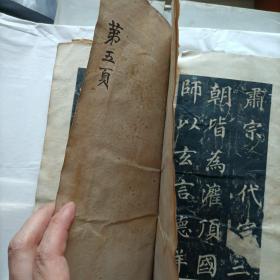 第五頁
肅宗代宗三
朝皆為灌頂國
師以玄言德祥